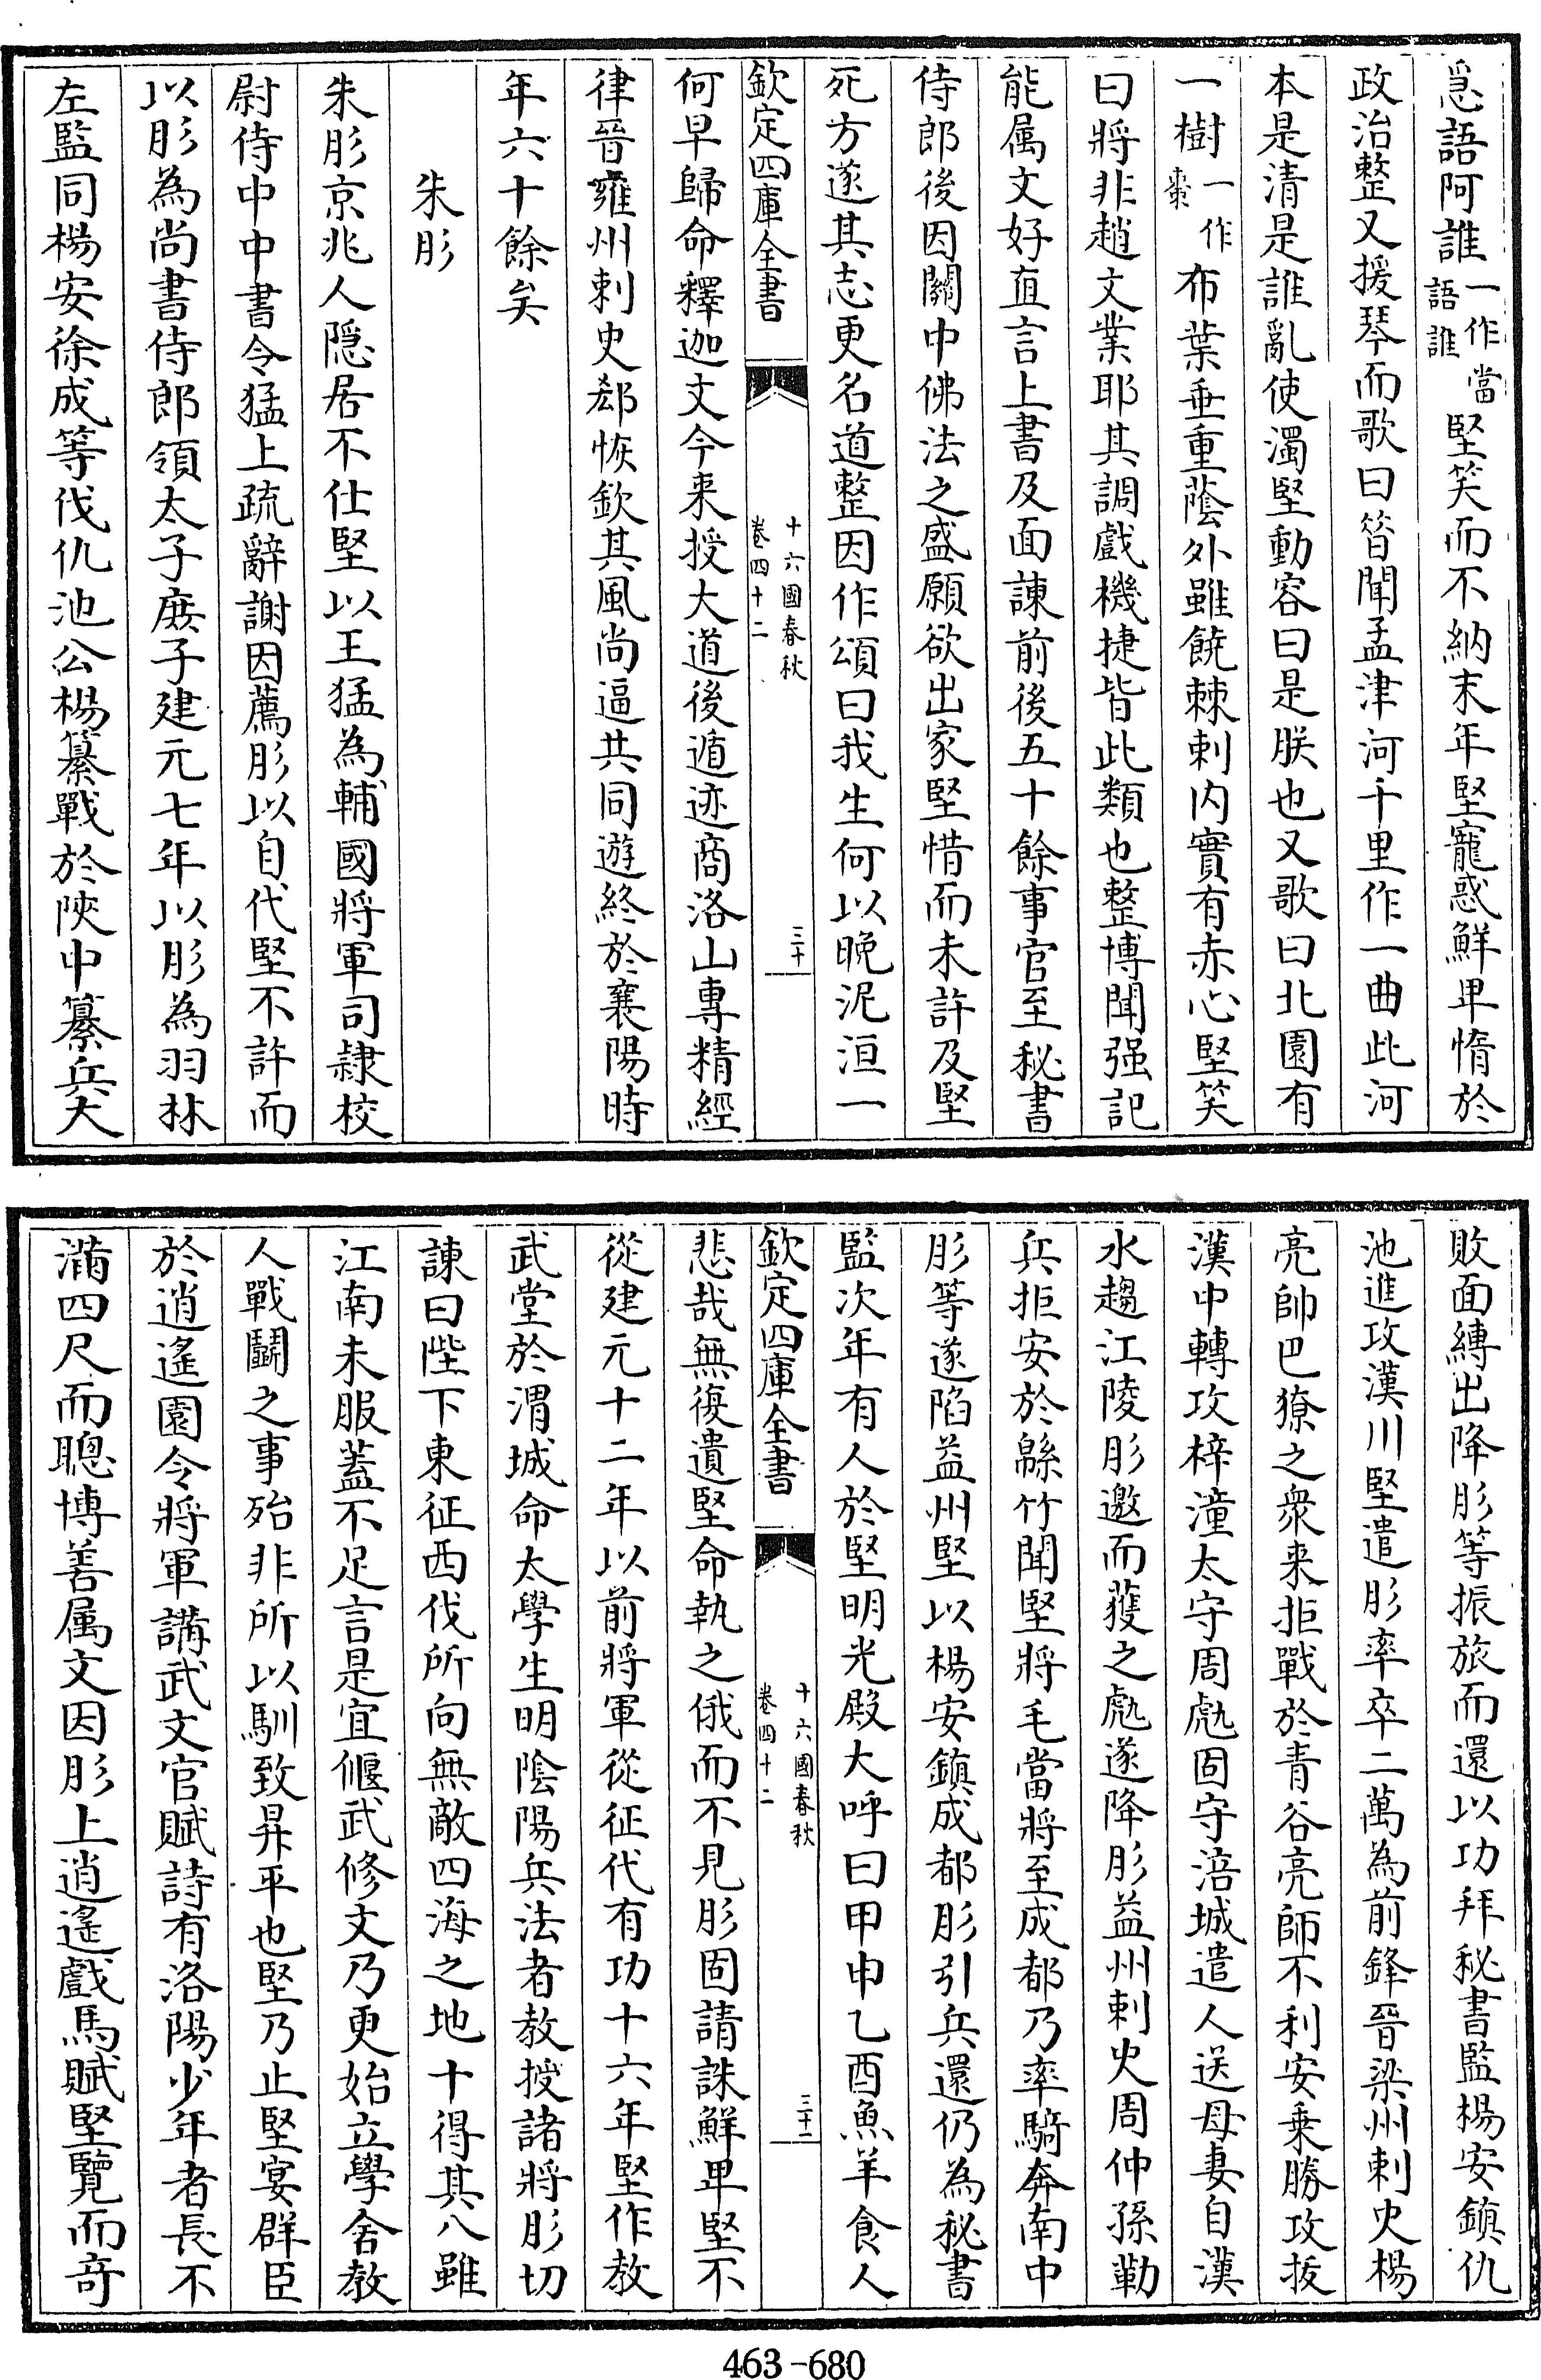 急語阿誰一作當語誰堅笑而不納末年堅寵惑鮮卑惰於
政治整又援琴而歌曰昝聞孟津河千里作一曲此河
本是清是誰亂使濁堅動容曰是朕也又歌曰北園有
一樹一作棗布葉垂重蔭外雖饒棘刺内實有赤心堅笑
曰將非趙文業耶其調戲機捷皆此類也整博聞强記
能属文好直言上書及面諫前後五十餘事官至秘書
侍郎後因關中佛法之盛願欲出家堅惜而未許及堅
死方遂其志更名道整因作頌曰我生何以晚泥洹一
欽定四庫全書 十六國春秋卷四十二 三十
何早歸命釋迦文今来授大道後遁迹商洛山專精經
律晉雍州刺史郄恢欽其風尚逼共同遊終於襄陽時
年六十餘矣
朱肜
朱肜京兆人隠居不仕堅以王猛為輔國將軍司隷校
尉侍中中書令猛上疏辭謝因薦肜以自代堅不許而
以肜為尚書侍郎領太子庶子建元七年以肜為羽林
左監同楊安徐成等伐仇池公楊纂戰於陜中纂兵大
敗面縛出降肜等振旅而還以功拜秘書監楊安鎮仇
池進攻漢川堅遣肜率卒二萬為前鋒晉梁州刺史楊
亮帥巴獠之衆来拒戰於青谷亮師不利安乗勝攻拔
漢中轉攻梓潼太守周虓固守涪城遣人送母妻自漢
水趨江陵肜邀而獲之虓遂降肜益州刺史周仲孫勒
兵拒安於緜竹聞堅將毛當將至成都乃率騎奔南中
肜等遂陷益州堅以楊安鎮成都肜引兵還仍為秘書
監次年有人於堅明光殿大呼曰甲申乙酉魚羊食人
欽定四庫全書 十六國春秋卷四十二 三十一
悲哉無復遺堅命執之俄而不見肜固請誅鮮卑堅不
從建元十二年以前將軍從征代有功十六年堅作教
武堂於渭城命太學生明陰陽兵法者教授諸將肜切
諫曰陛下東征西伐所向無敵四海之地十得其八雖
江南未服蓋不足言是宜偃武修文乃更始立學舍教
人戰鬭之事殆非所以馴致昇平也堅乃止堅宴群臣
於逍遥園令將軍講武文官賦詩有洛陽少年者長不
滿四尺而聰博善属文因肜上逍遥戲馬賦堅覽而竒
463-680